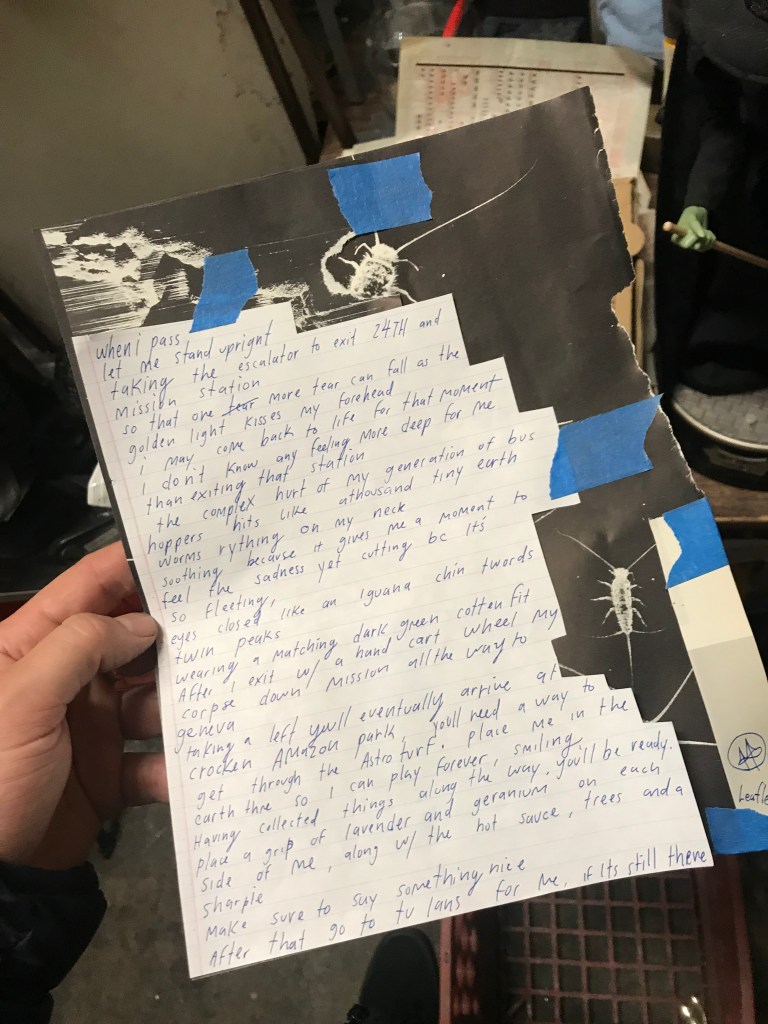 when i pass
let me stand upright
taking the escalator to exit 24TH and
mission station
so that one tear more tear can fall as the
golden light kisses my forehead
i may come back to life for that moment
i don't know any feeling more deep for me
than exiting that station
the complex hurt of my generation of bus
hoppers hits like athousand tiny earth
worms rything on my neck
soothing because it gives me a moment to
feel the sadness yet cutting bc its
so fleeting,
eyes closed like an Iguana chin twords
twin peaks
wearing a matching dark green cotten fit
After I exit w/ a hand cart wheel my
corpse down mission all the way to
geneva
taking a left you'll eventually arrive at
crocken AMazon park, you'll need a way to
get through the Astroturf. place me in the
earth thre so I can play forever, smiling
Having collected things along the way, you'll be ready.
place a grip of lavender and geranium on each
side of me, along w/ the hot sauce, trees and a
sharpie
Make sure to say something nice
After that go to tu lans for me, if Its still there
Leafle